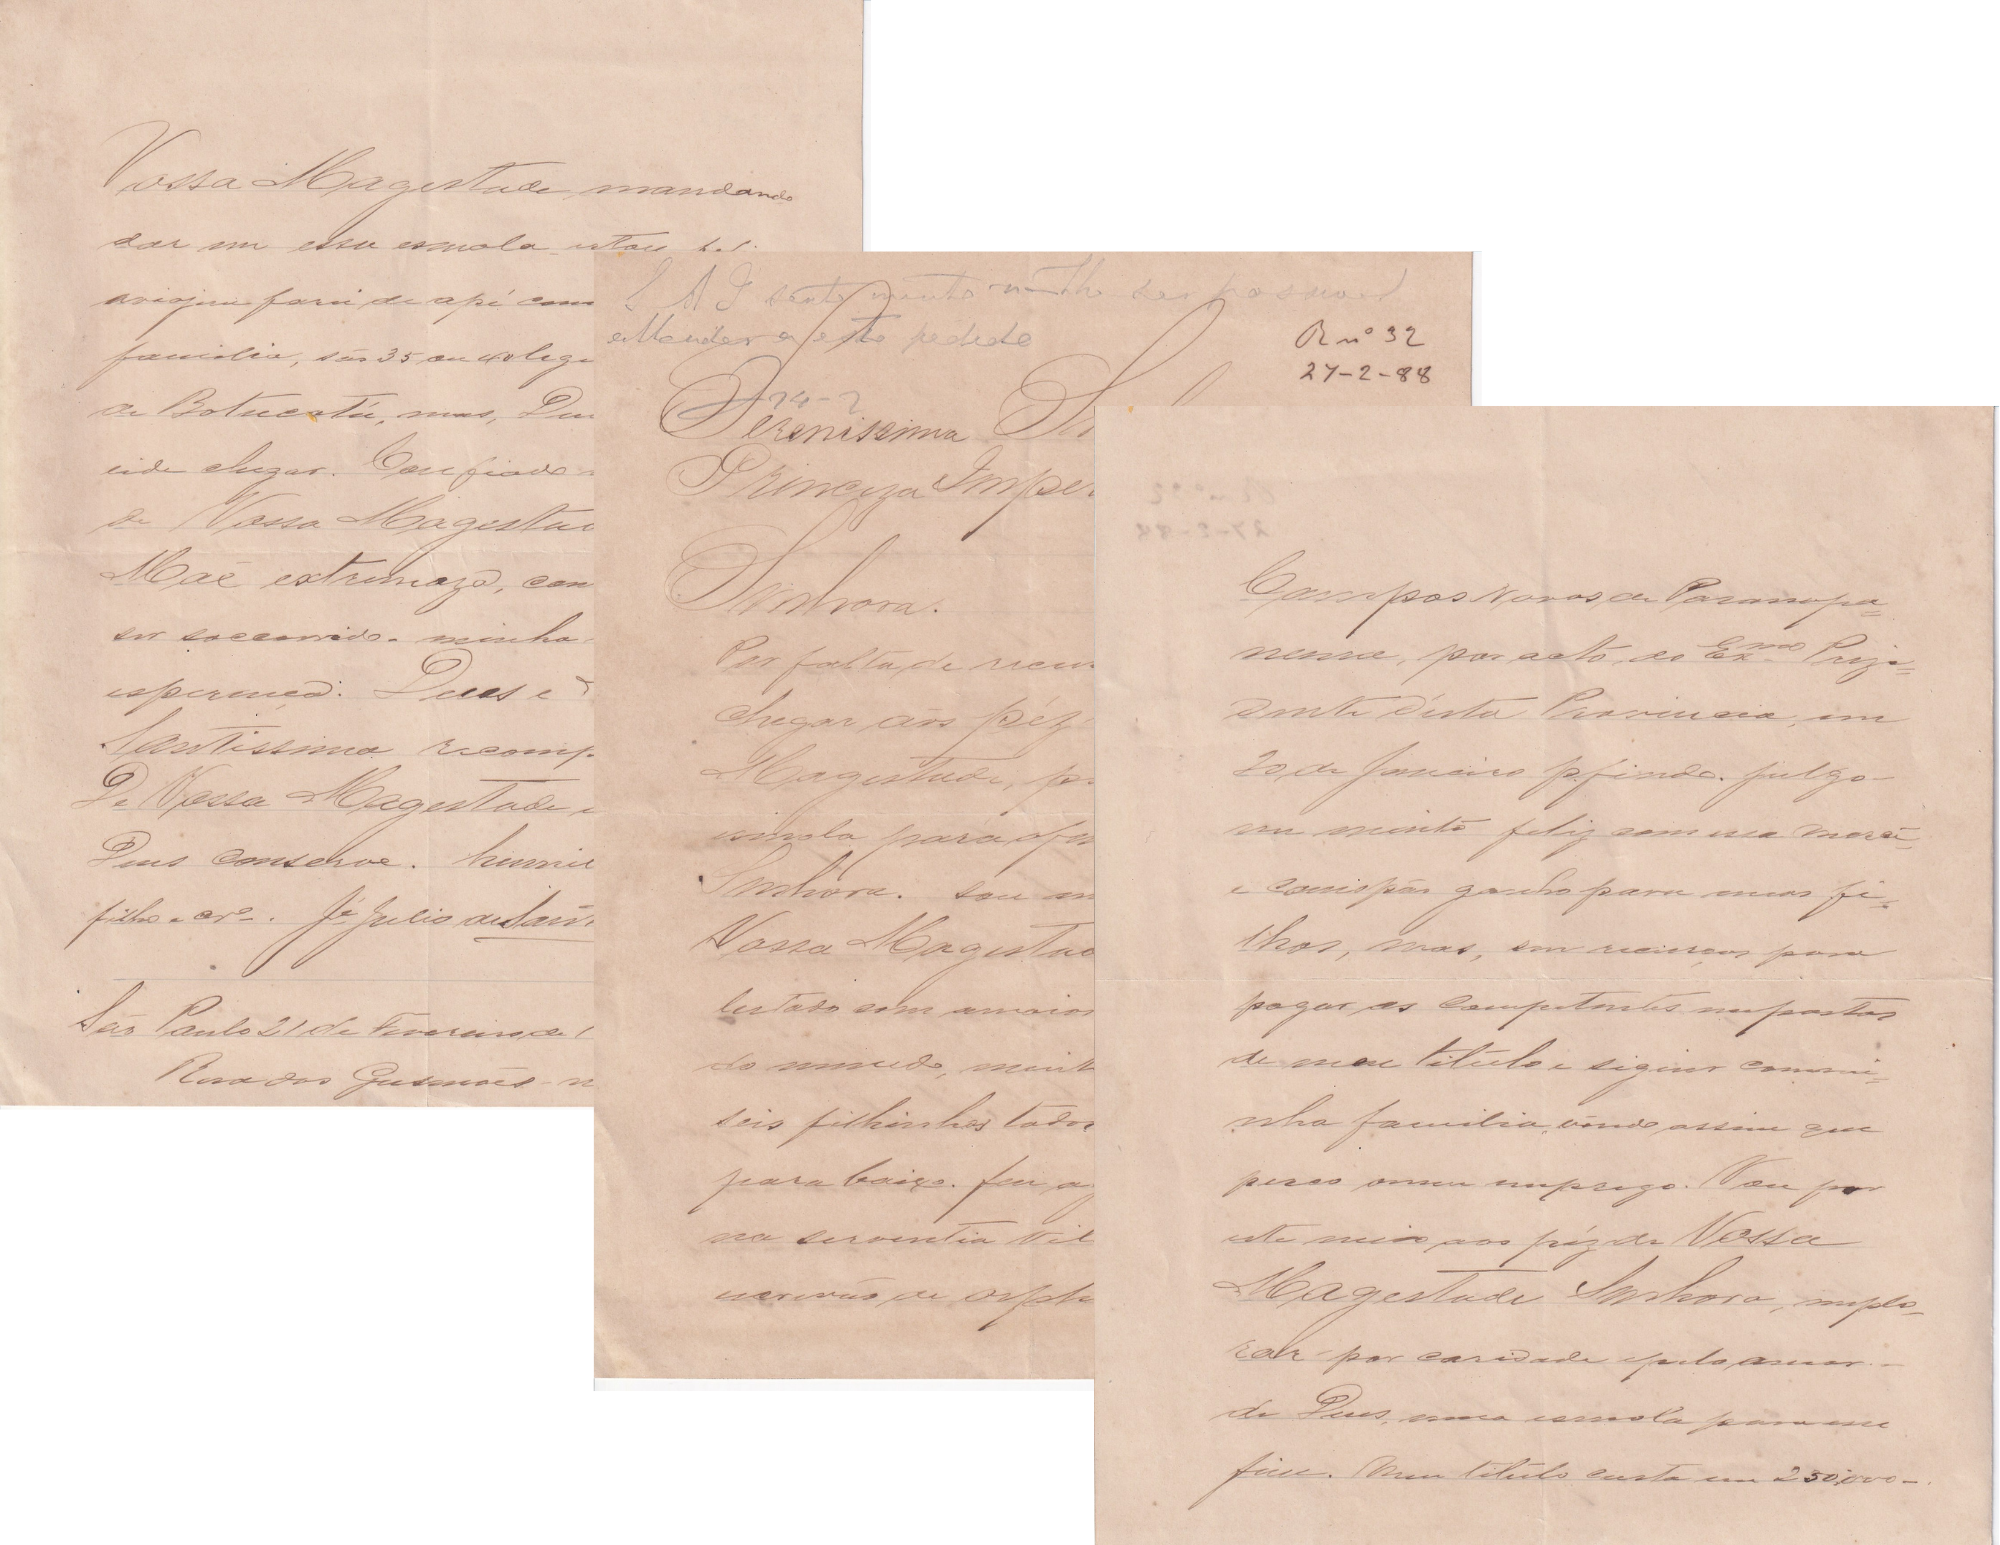 Vossa Magestade mandando
dar me essa esmola estou
familia, são 35 ou 40 leg
de Botucatú, mas, Deu
chegar. Confiado
de Vossa Magestad
Maē extremoza, con
ser soccorrido. minha
esperança. Deus e
Santissima recomp
De Vossa Magestade e
Deus conserve. humil
filho e cr.º Jé Julio de
São Paulo 21 de Fevereiro de 1
Rua dos Gusmões n
S A I sente muito não lhe ser possivel
attender a este pedido
24-2
R nº 32
27-2-88
Serenissima
Princeza Imper
Senhora.
Por falta de recur
chegar aos péz
Magestade, p
esmola para
Senhora. sou
Vossa Magestad
do mundo,
seis filhinhos todos
para baixo. fui
na serventia vit
escrivão de orph
Campos Novos de Paranapa=
nema, por acto, do Exmo Prizi=
dente d'esta Provincia, em
20 de Janeiro p. findo. julgo-
me muito feliz com essa mercê,
e com o pão ganho para meus fi=
lhos, mas, sem recursos para
pagar os competentes impostos
de meu titúlo e siguir com mi=
nha familia, vendo assim que
perco o meu emprego. Vou por
este meio aos péz de Vossa
Magestade Senhora, implo=
rar por caridade e pelo amor
de Deus, uma esmola para esse
fim. Meu titúlo custa me 250,000-